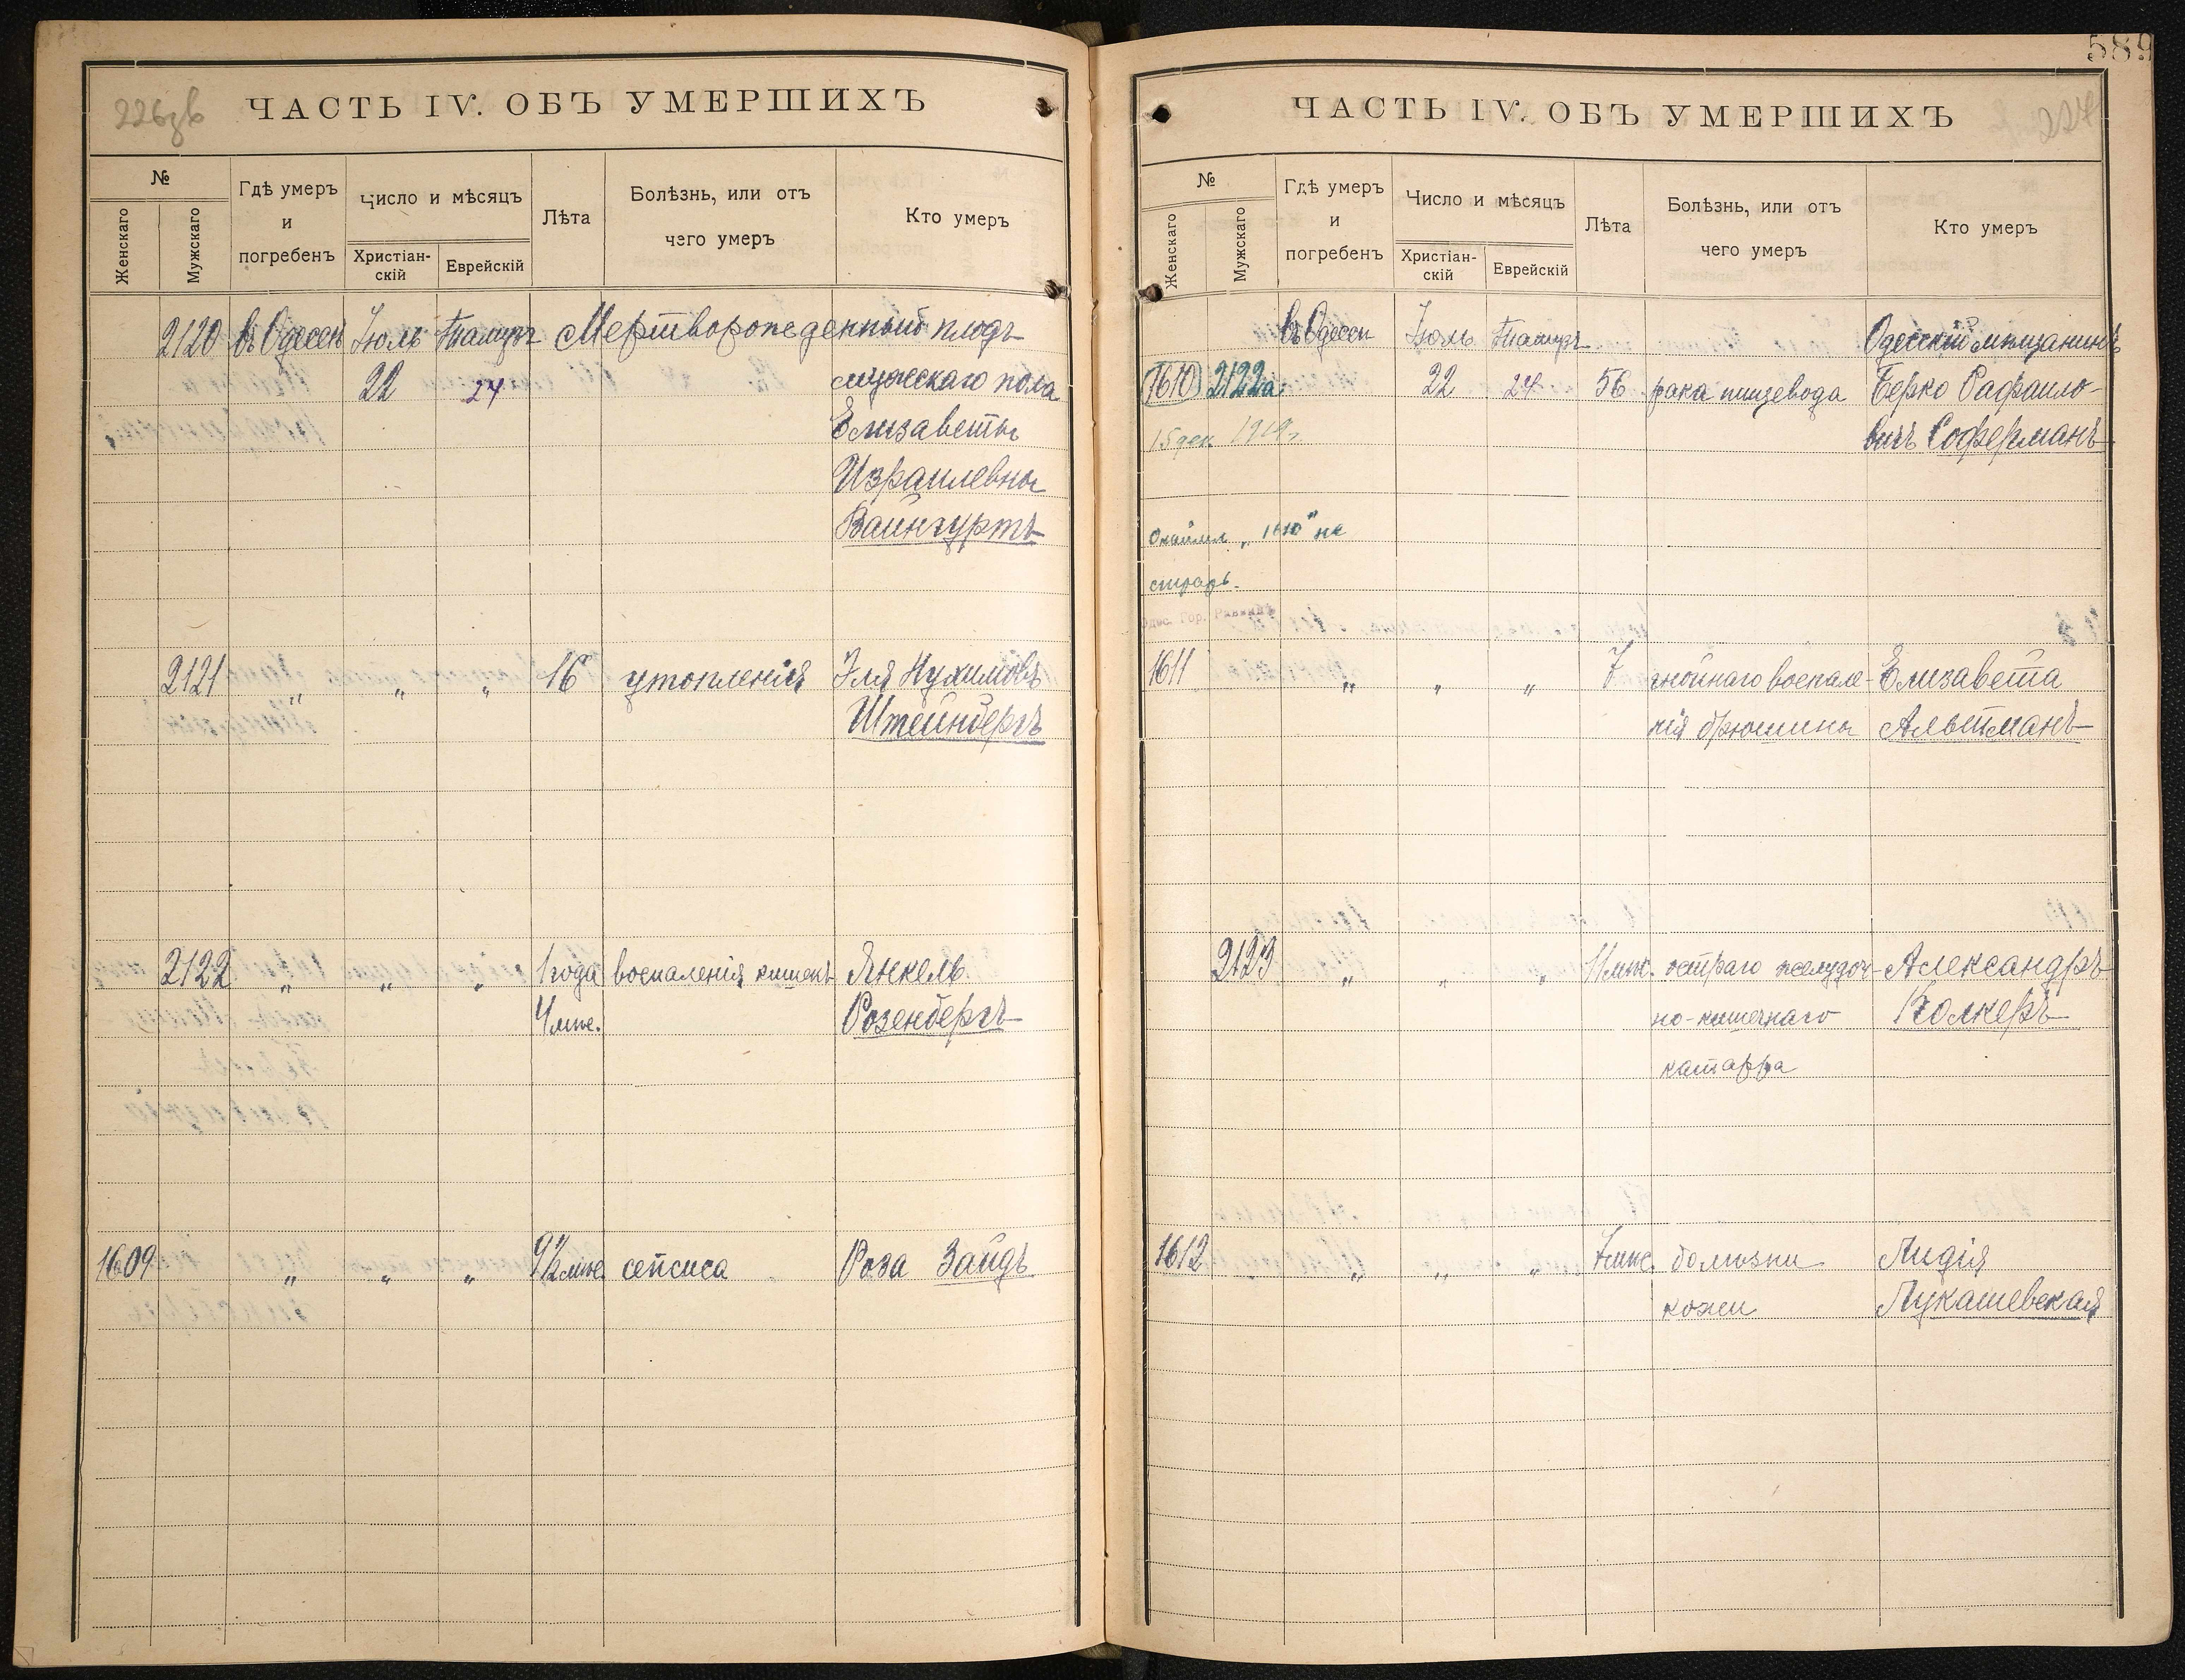 226зв
ЧАСТЬ IV. ОБЪ УМЕРШИХЪ
№
Женскаго
Мужскаго
Гдѣ умеръ
и
погребенъ
Число и мѣсяцъ
Христіан-
скій
Еврейскій
Лѣта
Болѣзнь, или отъ
чего умеръ
Кто умеръ
2120 въ Одессѣ Іюль Тамузъ Мертворожденный плодъ
22 24 мужескаго пола
Елизаветы
Израилевны
Вайнгуртъ
2121 „ „ „ 16 утопленія Эля Нухимовъ
Штейнбергъ
2122 „ „ „ 1 года воспаленія кишекъ Янкель
4 мѣс. Розенбергъ
1609 „ „ „ 9½ мѣс. сепсиса Роза Зайдъ
589
227
ЧАСТЬ IV. ОБЪ УМЕРШИХЪ
№
Женскаго
Мужскаго
Гдѣ умеръ
и
погребенъ
Число и мѣсяцъ
Христіан-
скій
Еврейскій
Лѣта
Болѣзнь, или отъ
чего умеръ
Кто умеръ
въ Одессѣ Іюль Тамузъ Одесскій мѣщанинъ
1610 2122а 22 24 56 рака пищевода Берко Рафаило-
15 дек 1919г. вичъ Соферманъ
„1610" не
Одес. Гор. Раввинъ
1611 „ „ „ 7 гнойнаго воспале- Елизавета
нія брюшины Альтманъ
2123 „ „ „ 11 мѣс. остраго желудоч- Александръ
но-кишечнаго Колкеръ
катарра
1612 „ „ „ 7 мѣс. болѣзни Лидія
кожи Лукашевская